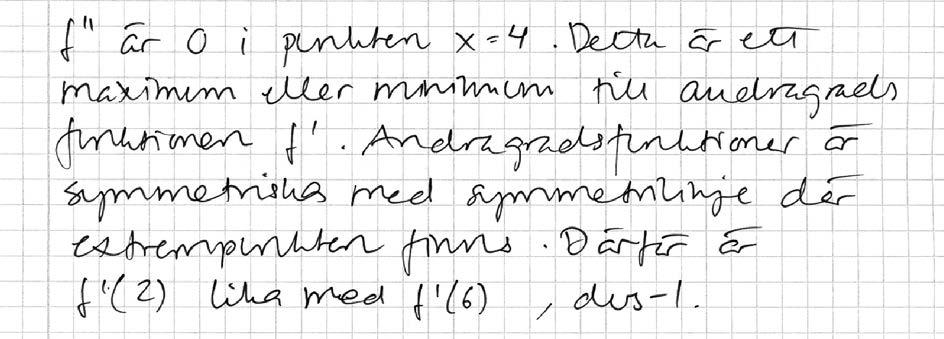 f'' är 0 i punkten x=4. Detta är ett
maximum eller minimum till andragrads
funktionen f'. Andragradsfunktioner är
symmetriska med symmetrilinje där
extrempunkten finns. Därför är
f'(2) lika med f'(6), dvs -1.